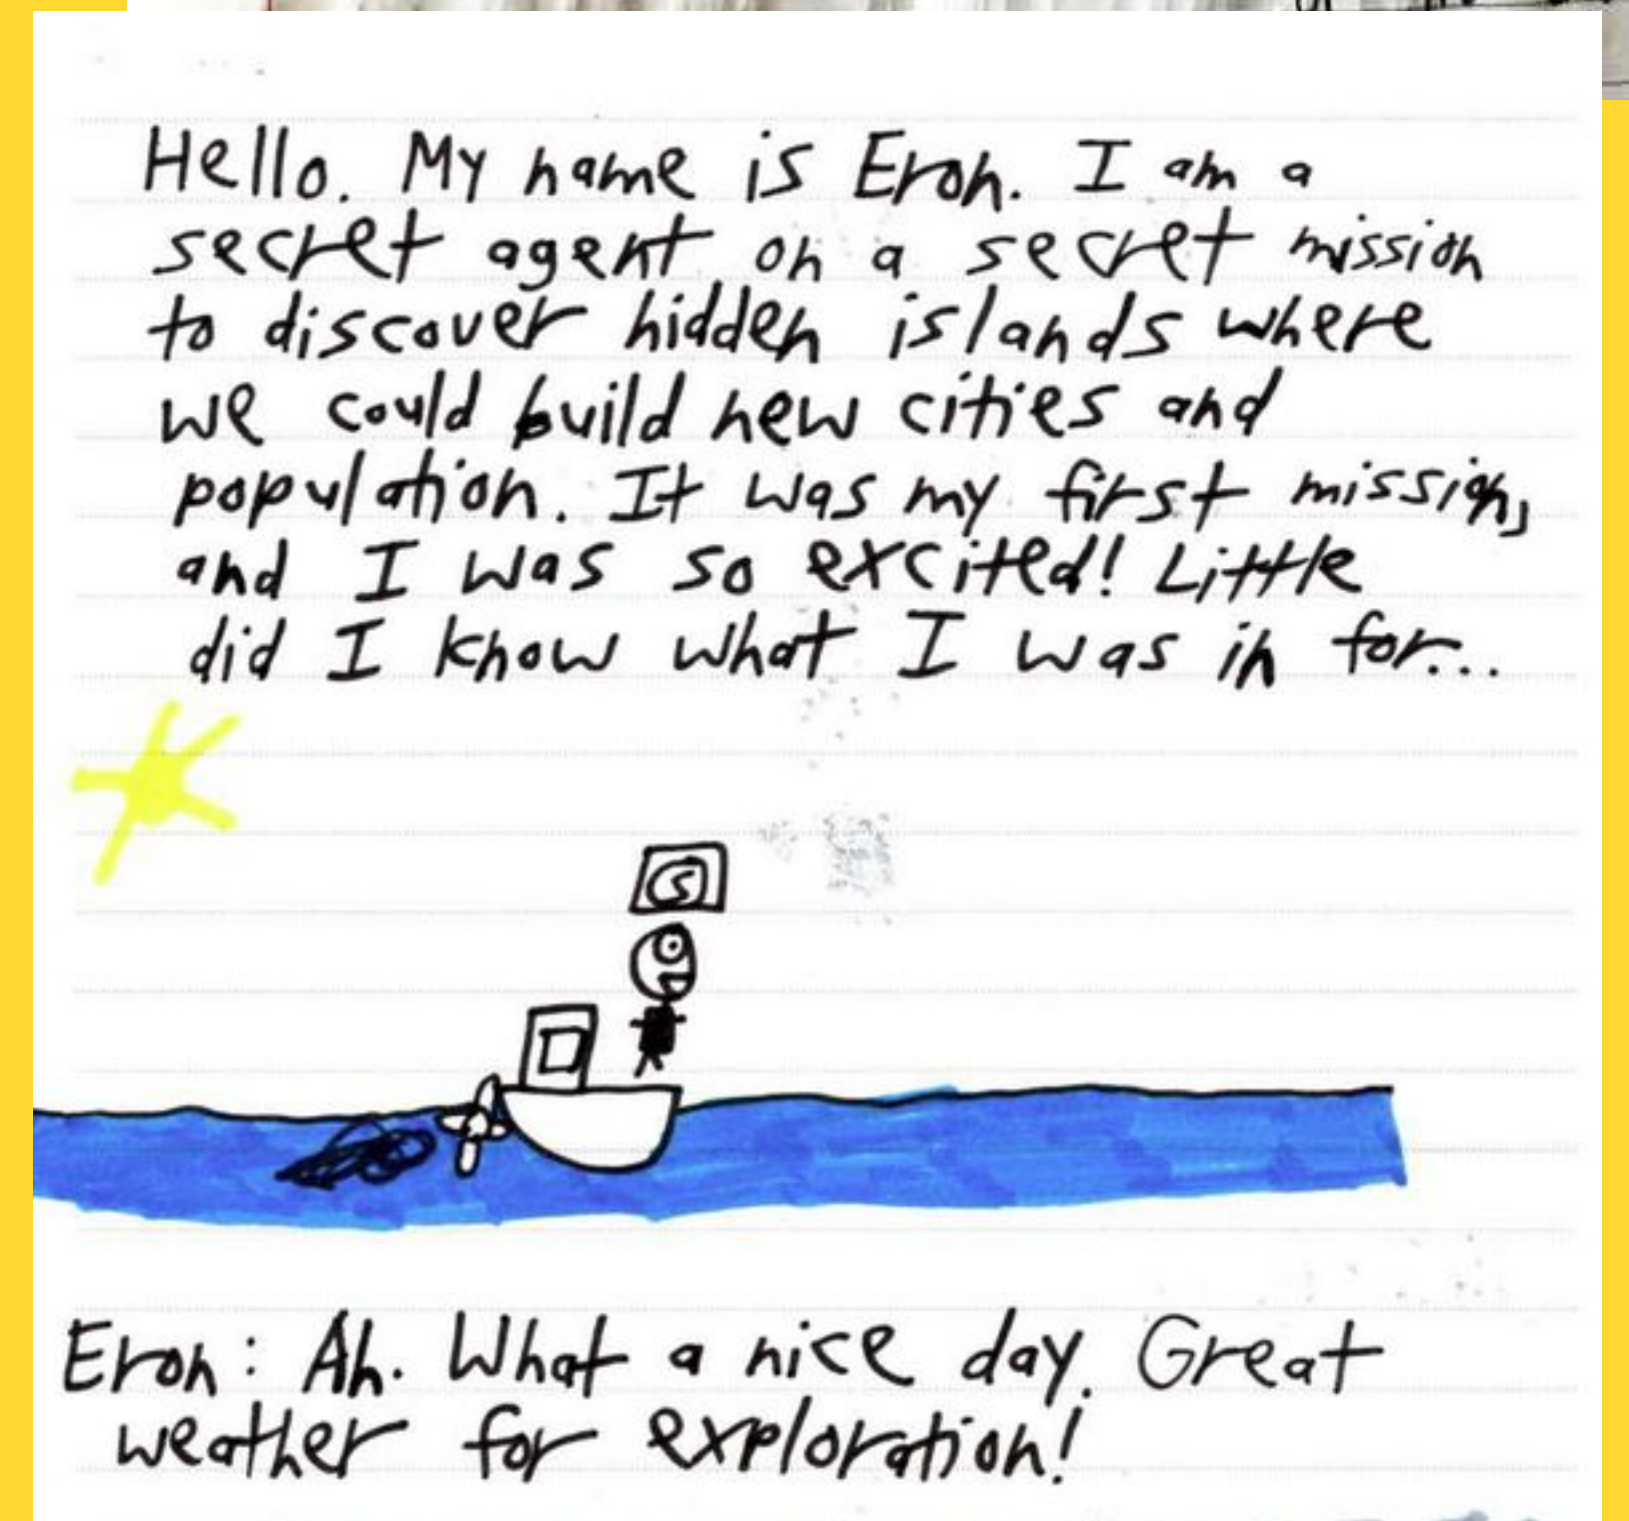 Hello. My name is Eron. I am a
secret agent on a secret mission
to discover hidden islands where
we could build new cities and
population. It was my first mission,
and I was so excited! Little
did I know what I was in for...
S
Eron: Ah. What a nice day. Great
weather for exploration!